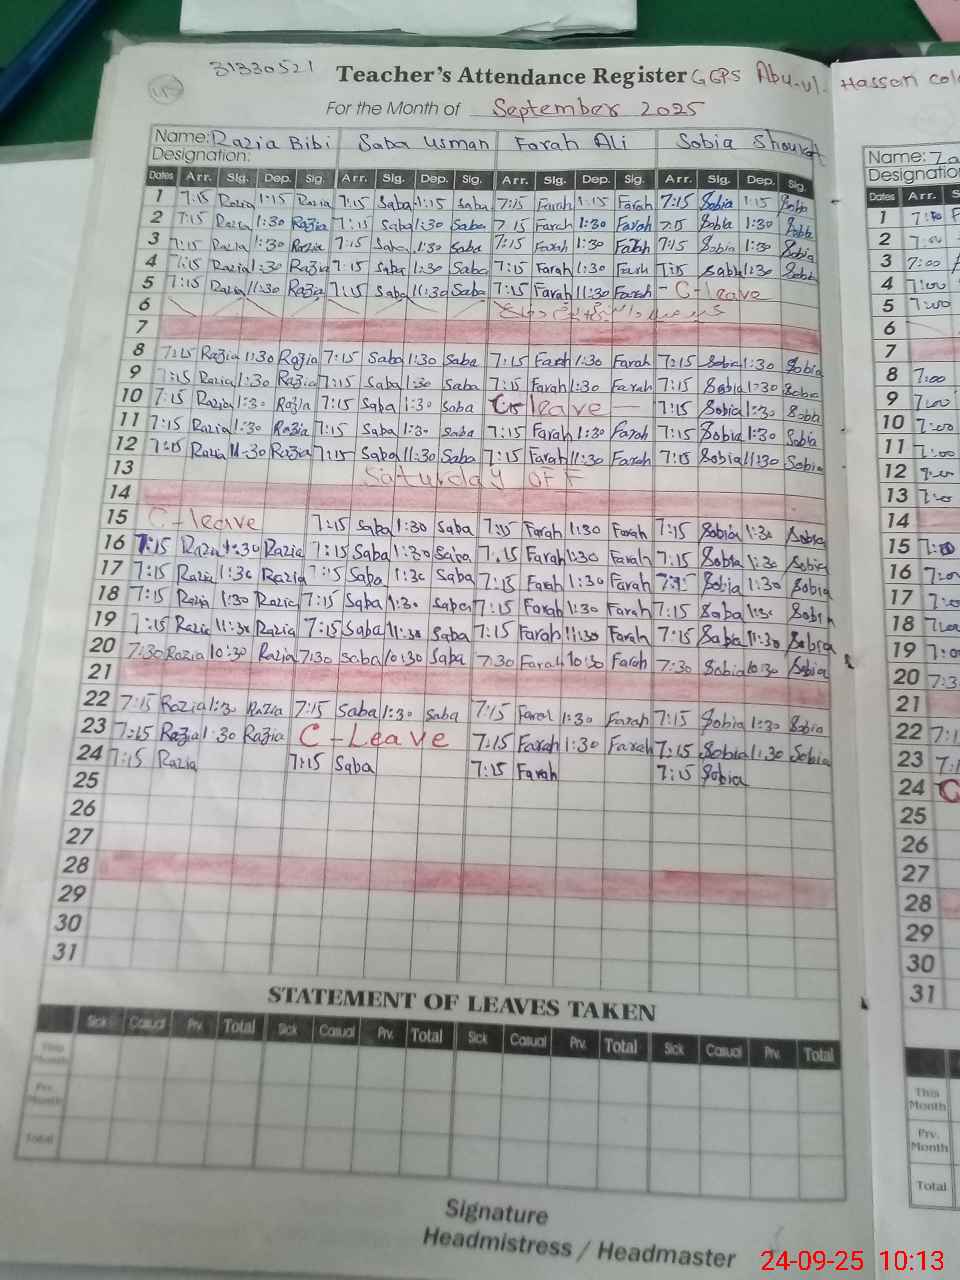 31330521 Teacher's Attendance Register GGPS Abu-ul- Hassan Colo
For the Month of September 2025
Name: Razia Bibi Saba Usman Farah Ali Sobia Shoukat Name: Za
Designation: Designation
Dates Arr. Sig. Dep. Sig. Arr. Sig. Dep. Sig. Arr. Sig. Dep. Sig. Arr. Sig. Dep. Sig. Dates Arr. S
1 7:15 Razia 1:15 Razia 7:15 Saba 1:15 Saba 7:15 Farah 1:15 Farah 7:15 Sobia 1:15 Sobia 1
2 7:15 Razia 1:30 Razia 7:15 Saba 1:30 Saba 7:15 Farah 1:30 Farah 7:15 Sobia 1:30 Sobia 2 7:00
3 7:15 Razia 1:30 Razia 7:15 Saba 1:30 Saba 7:15 Farah 1:30 Farah 7:15 Sobia 1:30 Sobia 3 7:00
4 7:15 Razia 1:30 Razia 7:15 Saba 1:30 Saba 7:15 Farah 1:30 Farah 7:15 Sobia 1:30 Sobia 4 7:00
5 7:15 Razia 11:30 Razia 7:15 Saba 11:30 Saba 7:15 Farah 11:30 Farah - C-leave 5 7:00
6 6
7 7
8 7:15 Razia 1:30 Razia 7:15 Saba 1:30 Saba 7:15 Farah 1:30 Farah 7:15 Sobia 1:30 Sobia 8 7:00
9 7:15 Razia 1:30 Razia 7:15 Saba 1:30 Saba 7:15 Farah 1:30 Farah 7:15 Sobia 1:30 Sobia 9 7:00
10 7:15 Razia 1:30 Razia 7:15 Saba 1:30 Saba C-leave — 7:15 Sobia 1:30 Sobia 10 7:00
11 7:15 Razia 1:30 Razia 7:15 Saba 1:30 Saba 7:15 Farah 1:30 Farah 7:15 Sobia 1:30 Sobia 11 7:00
12 7:15 Razia 11:30 Razia 7:15 Saba 11:30 Saba 7:15 Farah 11:30 Farah 7:15 Sobia 11:30 Sobia 12
13 Saturday OFF 13 7:00
14 14
15 C-leave 7:15 Saba 1:30 Saba 7:15 Farah 1:30 Farah 7:15 Sobia 1:30 Sobia 15 7:00
16 7:15 Razia 1:30 Razia 7:15 Saba 1:30 Saba 7:15 Farah 1:30 Farah 7:15 Sobia 1:30 Sobia 16 7:00
17 7:15 Razia 1:30 Razia 7:15 Saba 1:30 Saba 7:15 Farah 1:30 Farah 7:15 Sobia 1:30 Sobia 17 7:00
18 7:15 Razia 1:30 Razia 7:15 Saba 1:30 Saba 7:15 Farah 1:30 Farah 7:15 Sobia 1:30 Sobia 18 7:00
19 7:15 Razia 11:30 Razia 7:15 Saba 11:30 Saba 7:15 Farah 11:30 Farah 7:15 Sobia 11:30 Sobia 19 7:00
20 7:30 Razia 10:30 Razia 7:30 Saba 10:30 Saba 7:30 Farah 10:30 Farah 7:30 Sobia 10:30 Sobia 20 7:3
21 21
22 7:15 Razia 1:30 Razia 7:15 Saba 1:30 Saba 7:15 Farah 1:30 Farah 7:15 Sobia 1:30 Sobia 22 7:1
23 7:15 Razia 1:30 Razia C-Leave 7:15 Farah 1:30 Farah 7:15 Sobia 1:30 Sobia 23 7:1
24 7:15 Razia 7:15 Saba 7:15 Farah 7:15 Sobia 24 C
25 25
26 26
27 27
28 28
29 29
30 30
31 31
STATEMENT OF LEAVES TAKEN
Sick Casual Prv. Total Sick Casual Prv. Total Sick Casual Prv. Total Sick Casual Prv. Total
This Month This Month
Prv. Month Prv. Month
Total Total
Signature
Headmistress / Headmaster
24-09-25 10:13